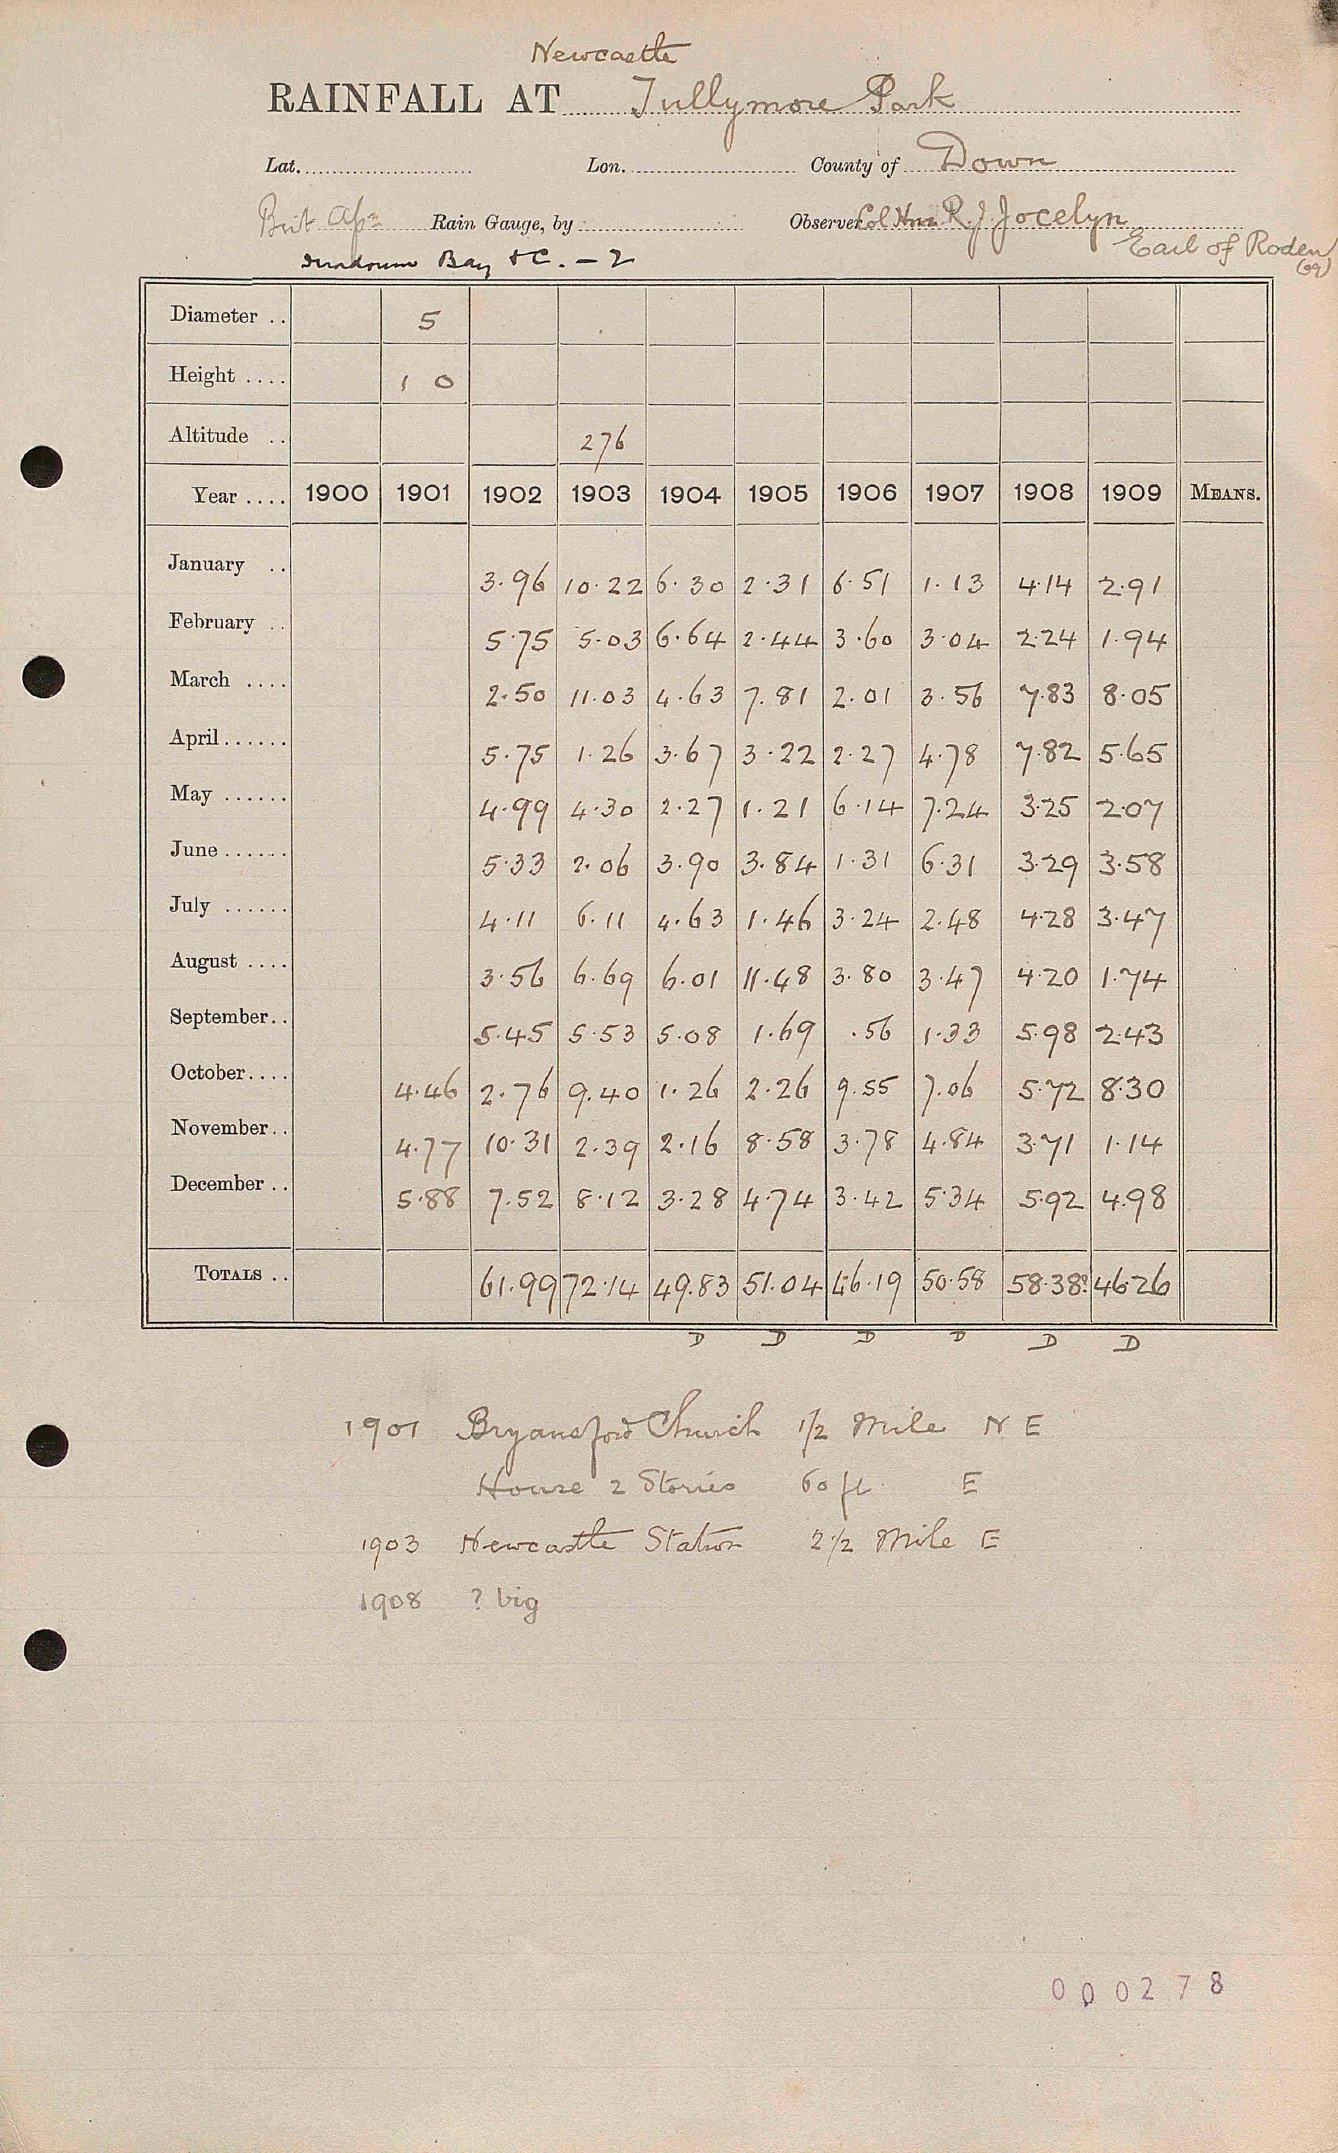 Newcastle
RAINFALL AT Tullymore Park
Lat. Lon. County of Down
Brit Assn Rain Gauge, by Observer Col Hon R. J. Jocelyn
Earl of Roden
(09)
Bay & C. - 2
Diameter .. 5
Height .... 1 0
Altitude .. 276
Year .... 1900 1901 1902 1903 1904 1905 1906 1907 1908 1909 MEANS.
January .. 3.96 10.22 6.30 2.31 6.51 1.13 4.14 2.91
February .. 5.75 5.03 6.64 2.44 3.60 3.04 2.24 1.94
March .... 2.50 11.03 4.63 7.81 2.01 3.56 7.83 8.05
April ...... 5.75 1.26 3.67 3.22 2.27 4.78 7.82 5.65
May ...... 4.99 4.30 2.27 1.21 6.14 7.24 3.25 2.07
June ...... 5.33 2.06 3.90 3.84 1.31 6.31 3.29 3.58
July ...... 4.11 6.11 4.63 1.46 3.24 2.48 4.28 3.47
August .... 3.56 6.69 6.01 11.48 3.80 3.47 4.20 1.74
September .. 5.45 5.53 5.08 1.69 .56 1.33 5.98 2.43
October .... 4.46 2.76 9.40 1.26 2.26 9.55 7.06 5.72 8.30
November .. 4.77 10.31 2.39 2.16 8.58 3.78 4.84 3.71 1.14
December .. 5.88 7.52 8.12 3.28 4.74 3.42 5.34 5.92 4.98
TOTALS .. 61.99 72.14 49.83 51.04 46.19 50.58 58.38? 46.26
D D D D D D
1901 Bryansford Church 1/2 Mile N E
House 2 Stories 60 ft E
1903 Newcastle Station 2 1/2 Mile E
1908 ? big
000278